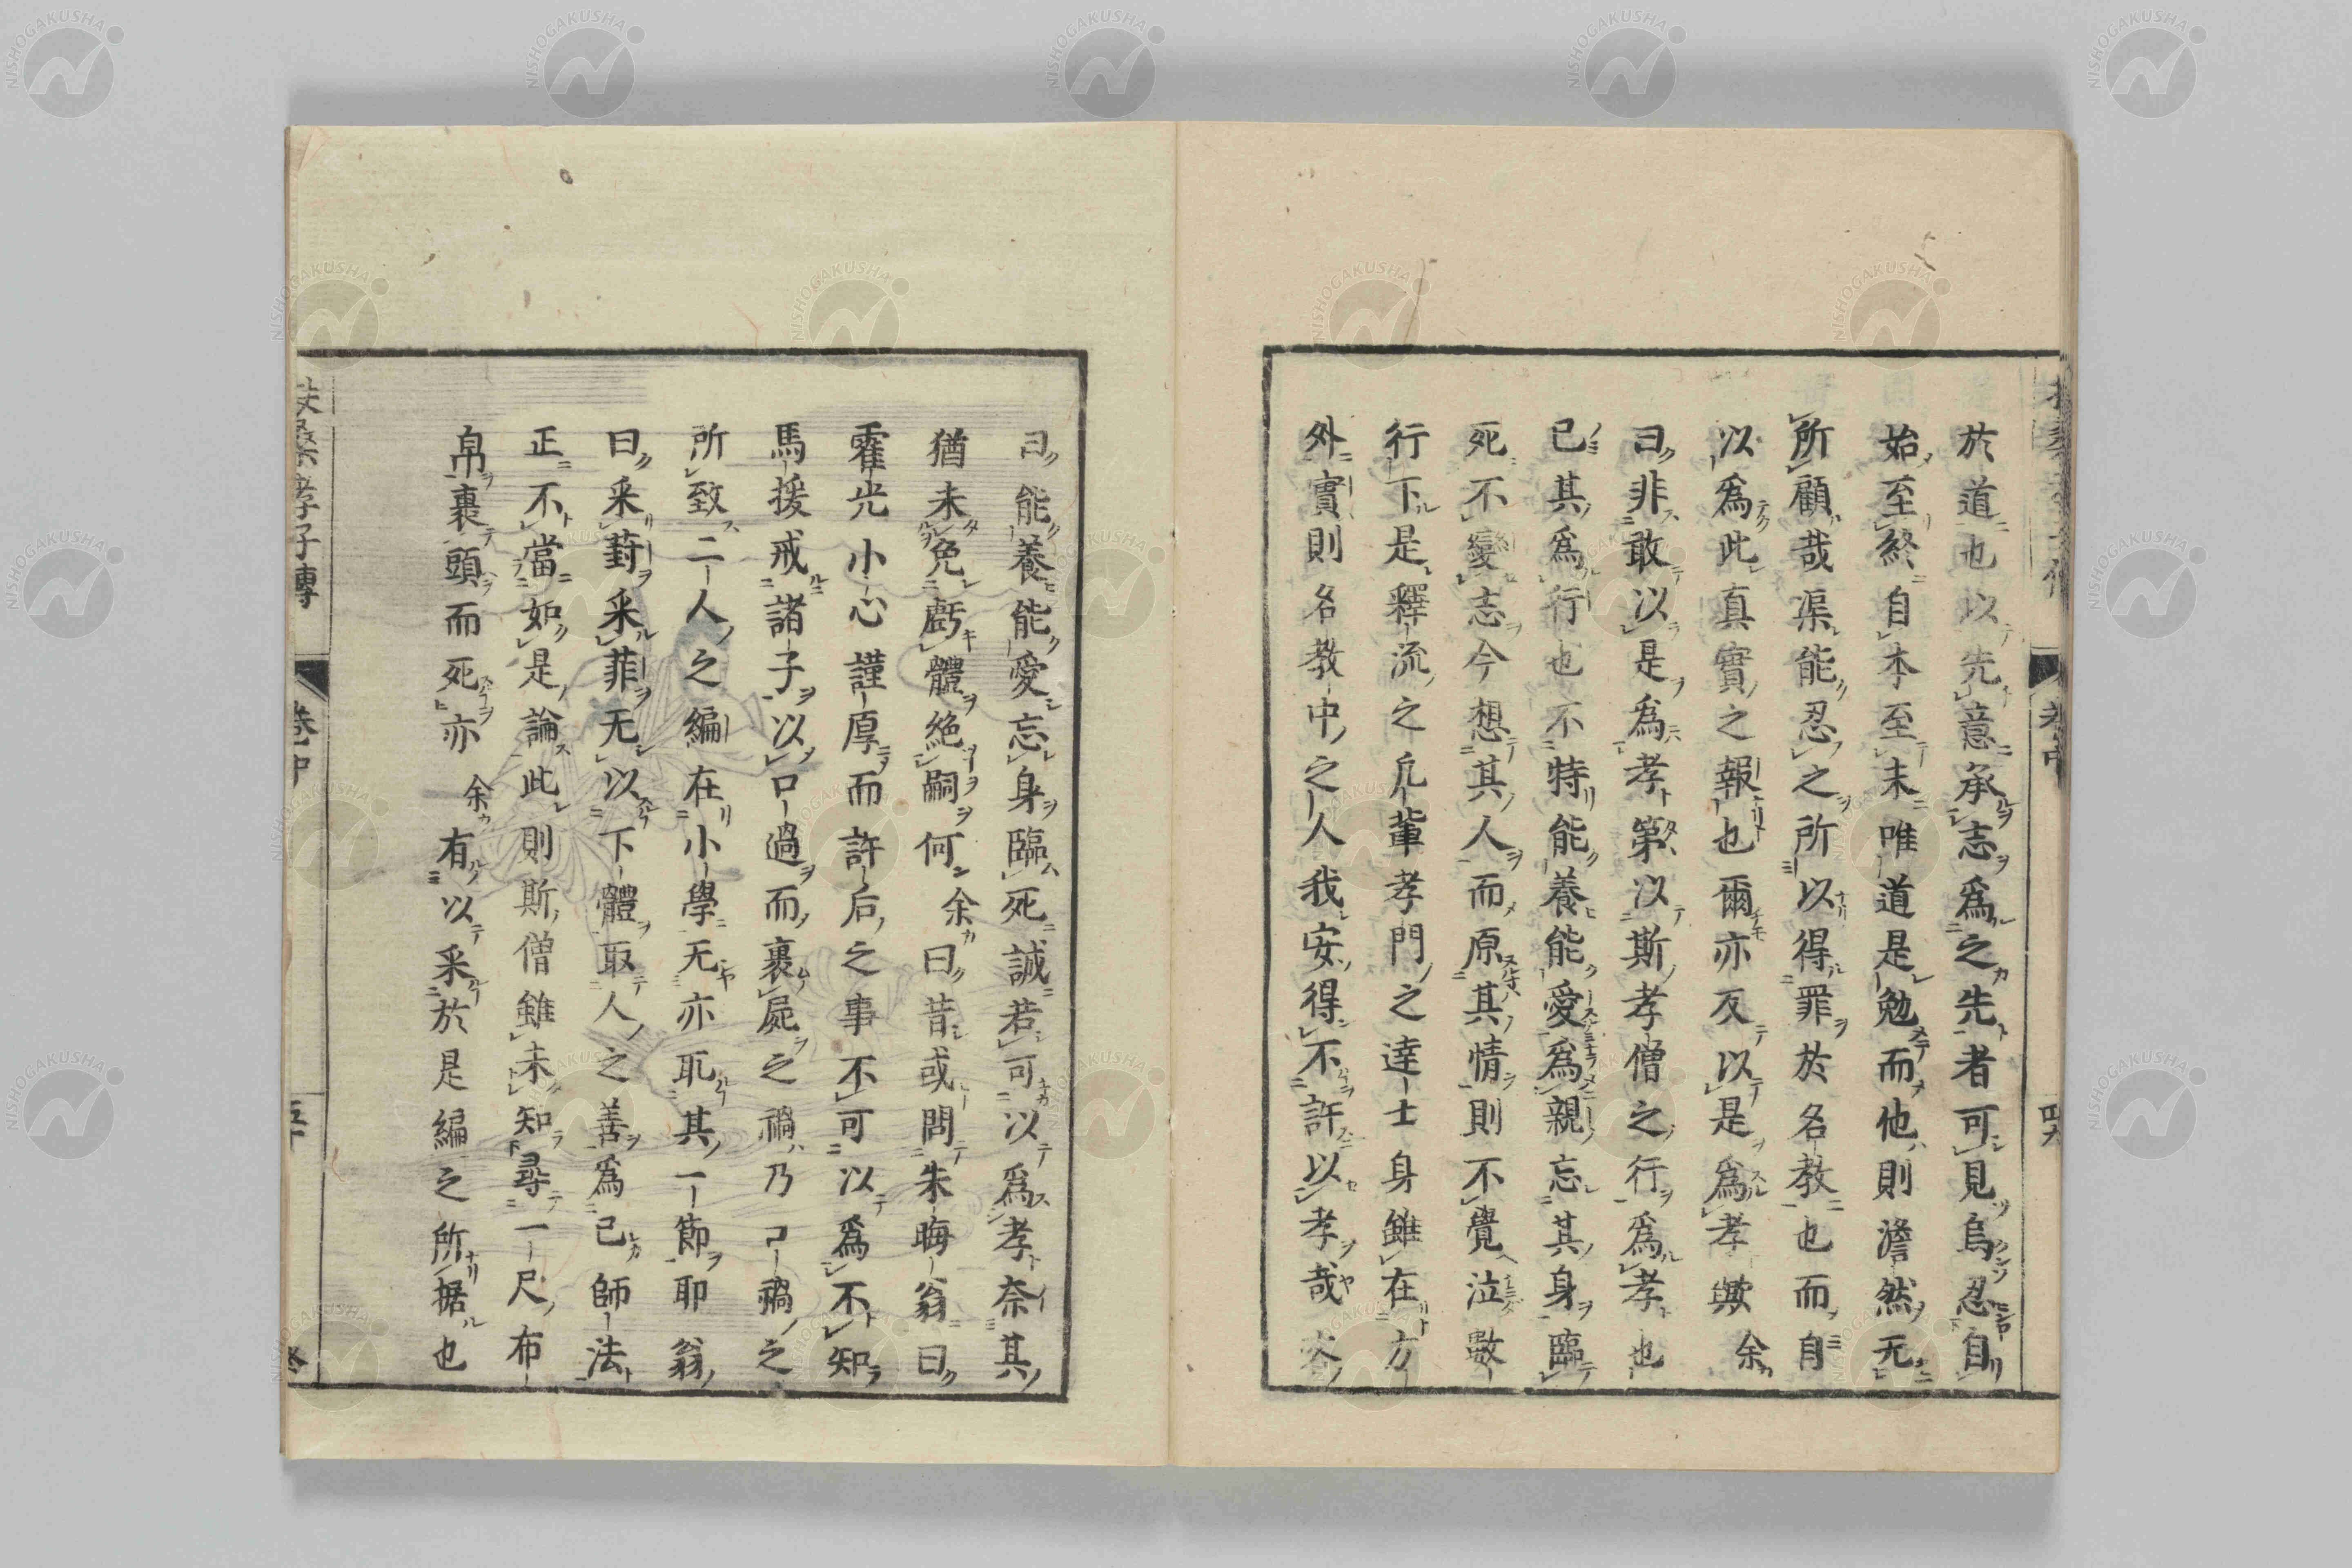 於道也以先意承志爲之先者可見烏忍自
始至終自本至末唯道是勉而他則澹然无
所顧哉渠能忍之所以得罪於名教也而自
以爲此真實之報也爾亦反以是爲孝歟余
曰非敢以是爲孝第以斯孝僧之行爲孝也
已其爲行也不特能養能愛爲親忘其身臨
死不變志今想其人而原其情則不覺泣數
行下是釋流之凡輩孝門之達士身雖在方
外實則名教中之人我安得不許以孝哉客
曰能養能愛忘身臨死誠若可以爲孝奈其
猶未免虧體絶嗣何余曰昔或問朱晦翁曰
霍光小心謹厚而許后之事不可以爲不知
馬援戒諸子以口過而裹屍之禍乃口禍之
所致二人之編在小學无亦取其一節耶翁
曰采葑采菲无以下體取人之善爲己師法
正不當如是論此則斯僧雖未知尋一尺布
帛裹頭而死亦余有以采於是編之所據也
扶桑孝子傳 卷中 五十 終